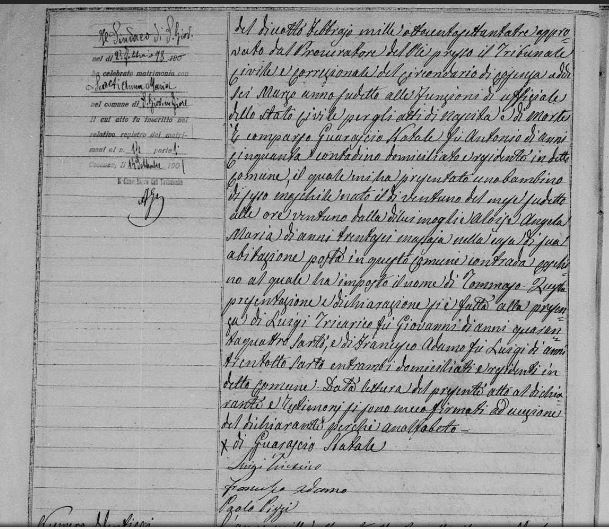 Il Sindaco di S. Giov.
nel dì
ha celebrato matrimonio con
Maria
nel comune di S. Giov. in Fiore
il cui atto fu inscritto nel
relativo registro dei matri-
moni al n. parte
Cosenza, lì 190
Il Cancelliere del Tribunale
del diciotto Febbrajo mille ottocentosettantatre appro-
vato dal Procuratore del Re presso il Tribunale
Civile e Correzionale del Circondario di Cosenza addì
sei Marzo anno sudetto alle funzioni di uffiziale
dello Stato Civile per gli atti di Nascita e di Morte
È comparso Guarascio Natale fu Antonio di anni
cinquanta contadino domiciliato e residente in detto
Comune, il quale mi ha presentato uno bambino
di sesso maschile nato il dì ventuno del mese sudetto
alle ore ventuno dalla di lui moglie Aloise Angela
Maria di anni trentasei nella casa di sua
abitazione posta in questo Comune contrada
no al quale ha imposto il nome di Tommaso
presentazione e dichiarazione si è fatta alla presen-
za di Luigi Tricarico fu Giovanni di anni quaran-
taquattro sarto, e di Francesco Adamo fu Luigi di anni
trentotto sarto entrambi domiciliati e residenti in
detto Comune Data lettura del presente atto al dichia-
rante e Testimoni si sono meco firmati ad eccezione
del dichiarante perché analfabeto
di Guarascio Natale
Luigi Tricarico
Francesco Adamo
Paolo Pizzi
Numero